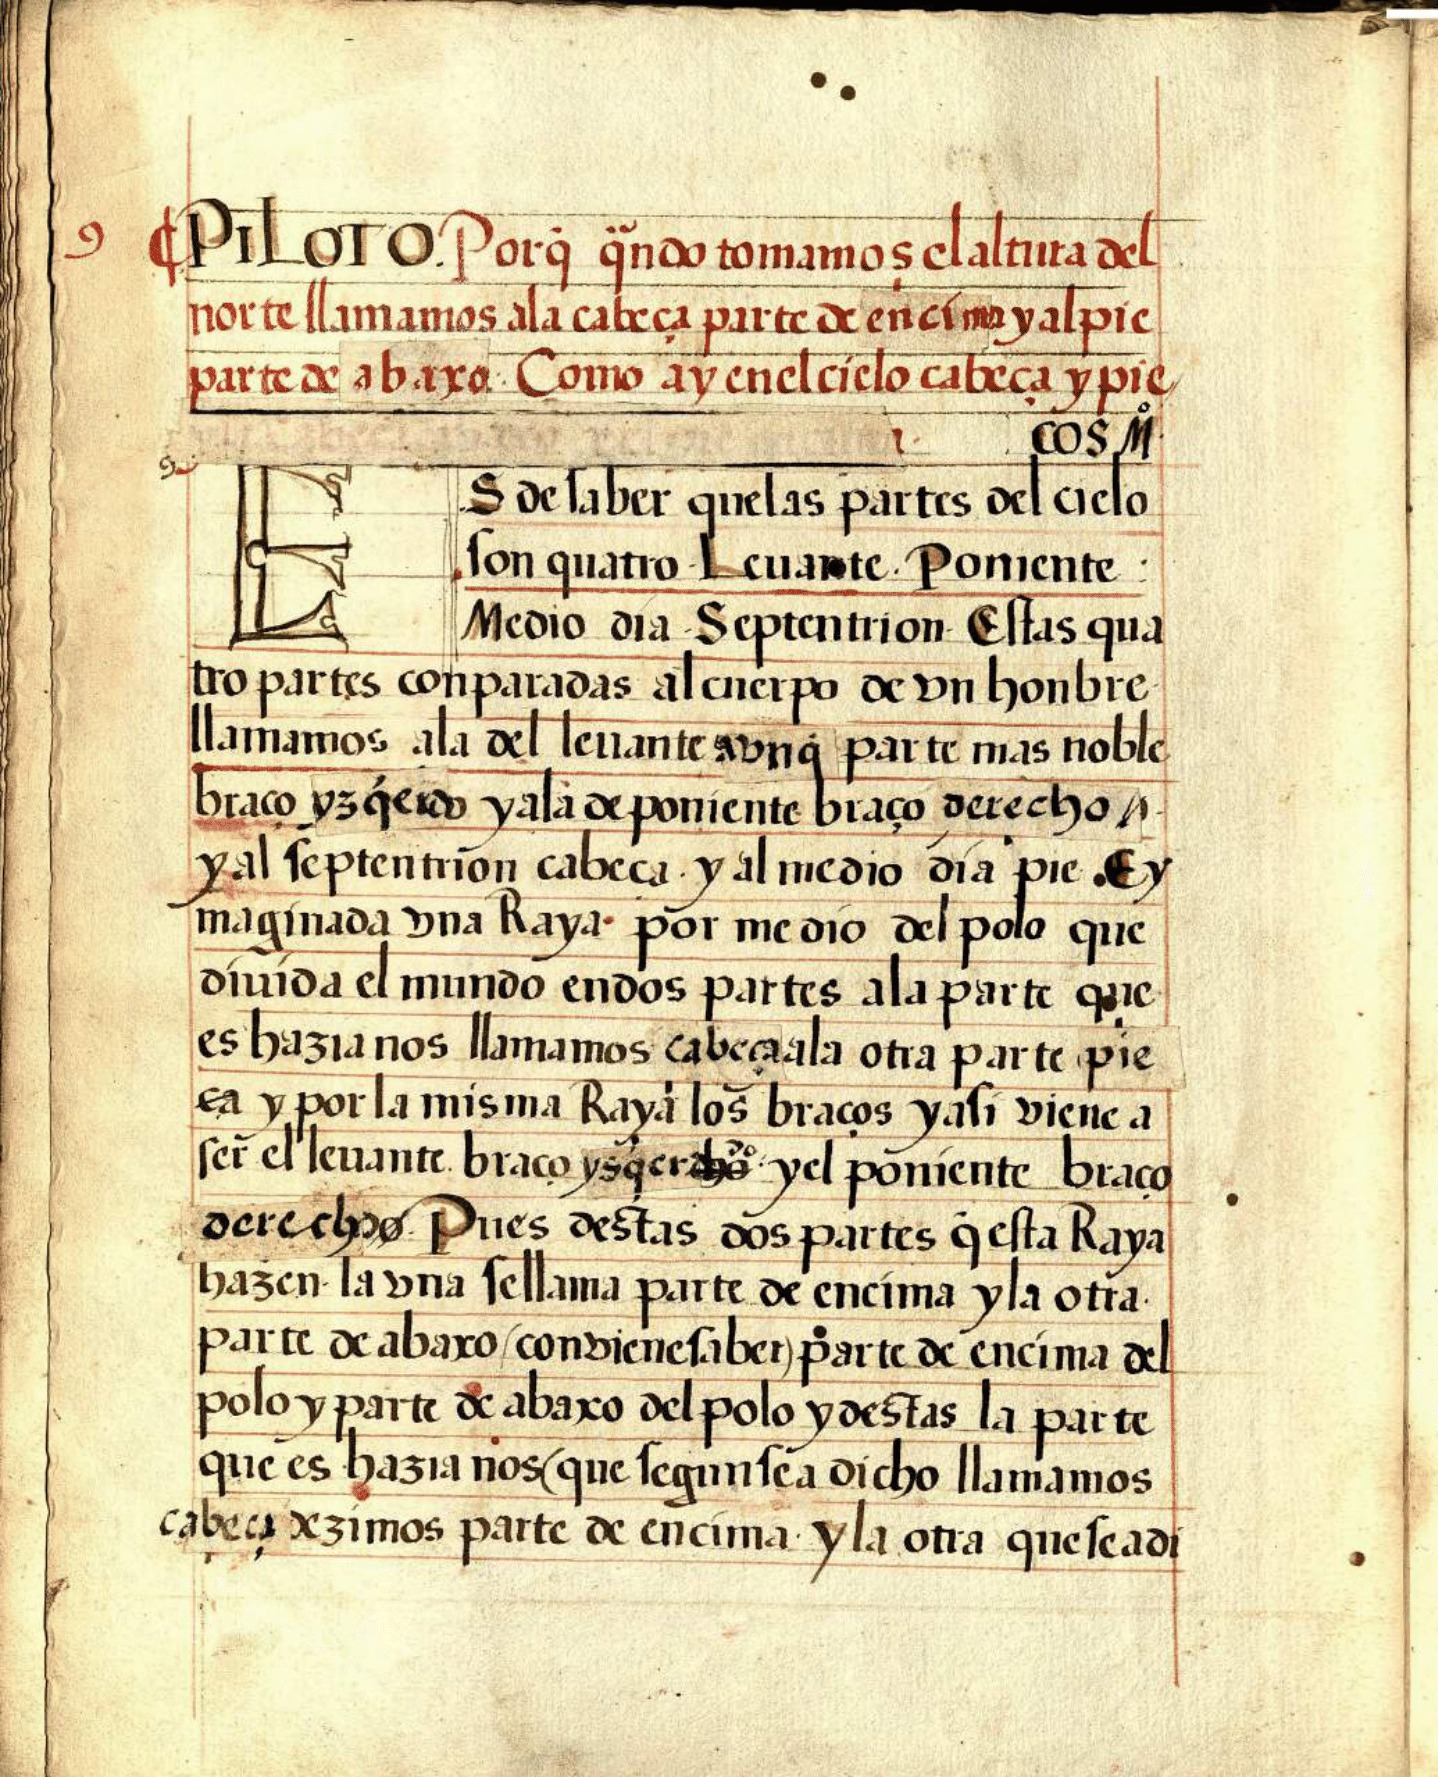 9 ¢ PILOTO. Porq̃ q̃ndo tomamos el altura del
norte llamamos ala cabeça parte de encima y al pie
parte de abaxo. Como ay en el cielo cabeça y pie
COSMº
ES de saber que las partes del cielo
son quatro. Leuante. Poniente.
Medio dia. Septentrion. Estas qua
tro partes conparadas al cuerpo de vn honbre
llamamos ala del leuante avnq̃ parte mas noble
braço yzq̃erdo y ala de poniente braço derecho
y al septentrion cabeça. y al medio dia pie. E y
maginada vna Raya por medio del polo que
diuida el mundo en dos partes ala parte que
es hazia nos llamamos cabeça ala otra parte pie
ça y por la misma Raya los braços y asi viene a
ser el leuante braço y el poniente braço
derecho. Pues destas dos partes q̃ esta Raya
hazen la vna se llama parte de encima y la otra
parte de abaxo (conviene saber) parte de encima del
polo y parte de abaxo del polo y destas la parte
que es hazia nos (que segun sea dicho llamamos
cabeça dezimos parte de encima. y la otra que sea di